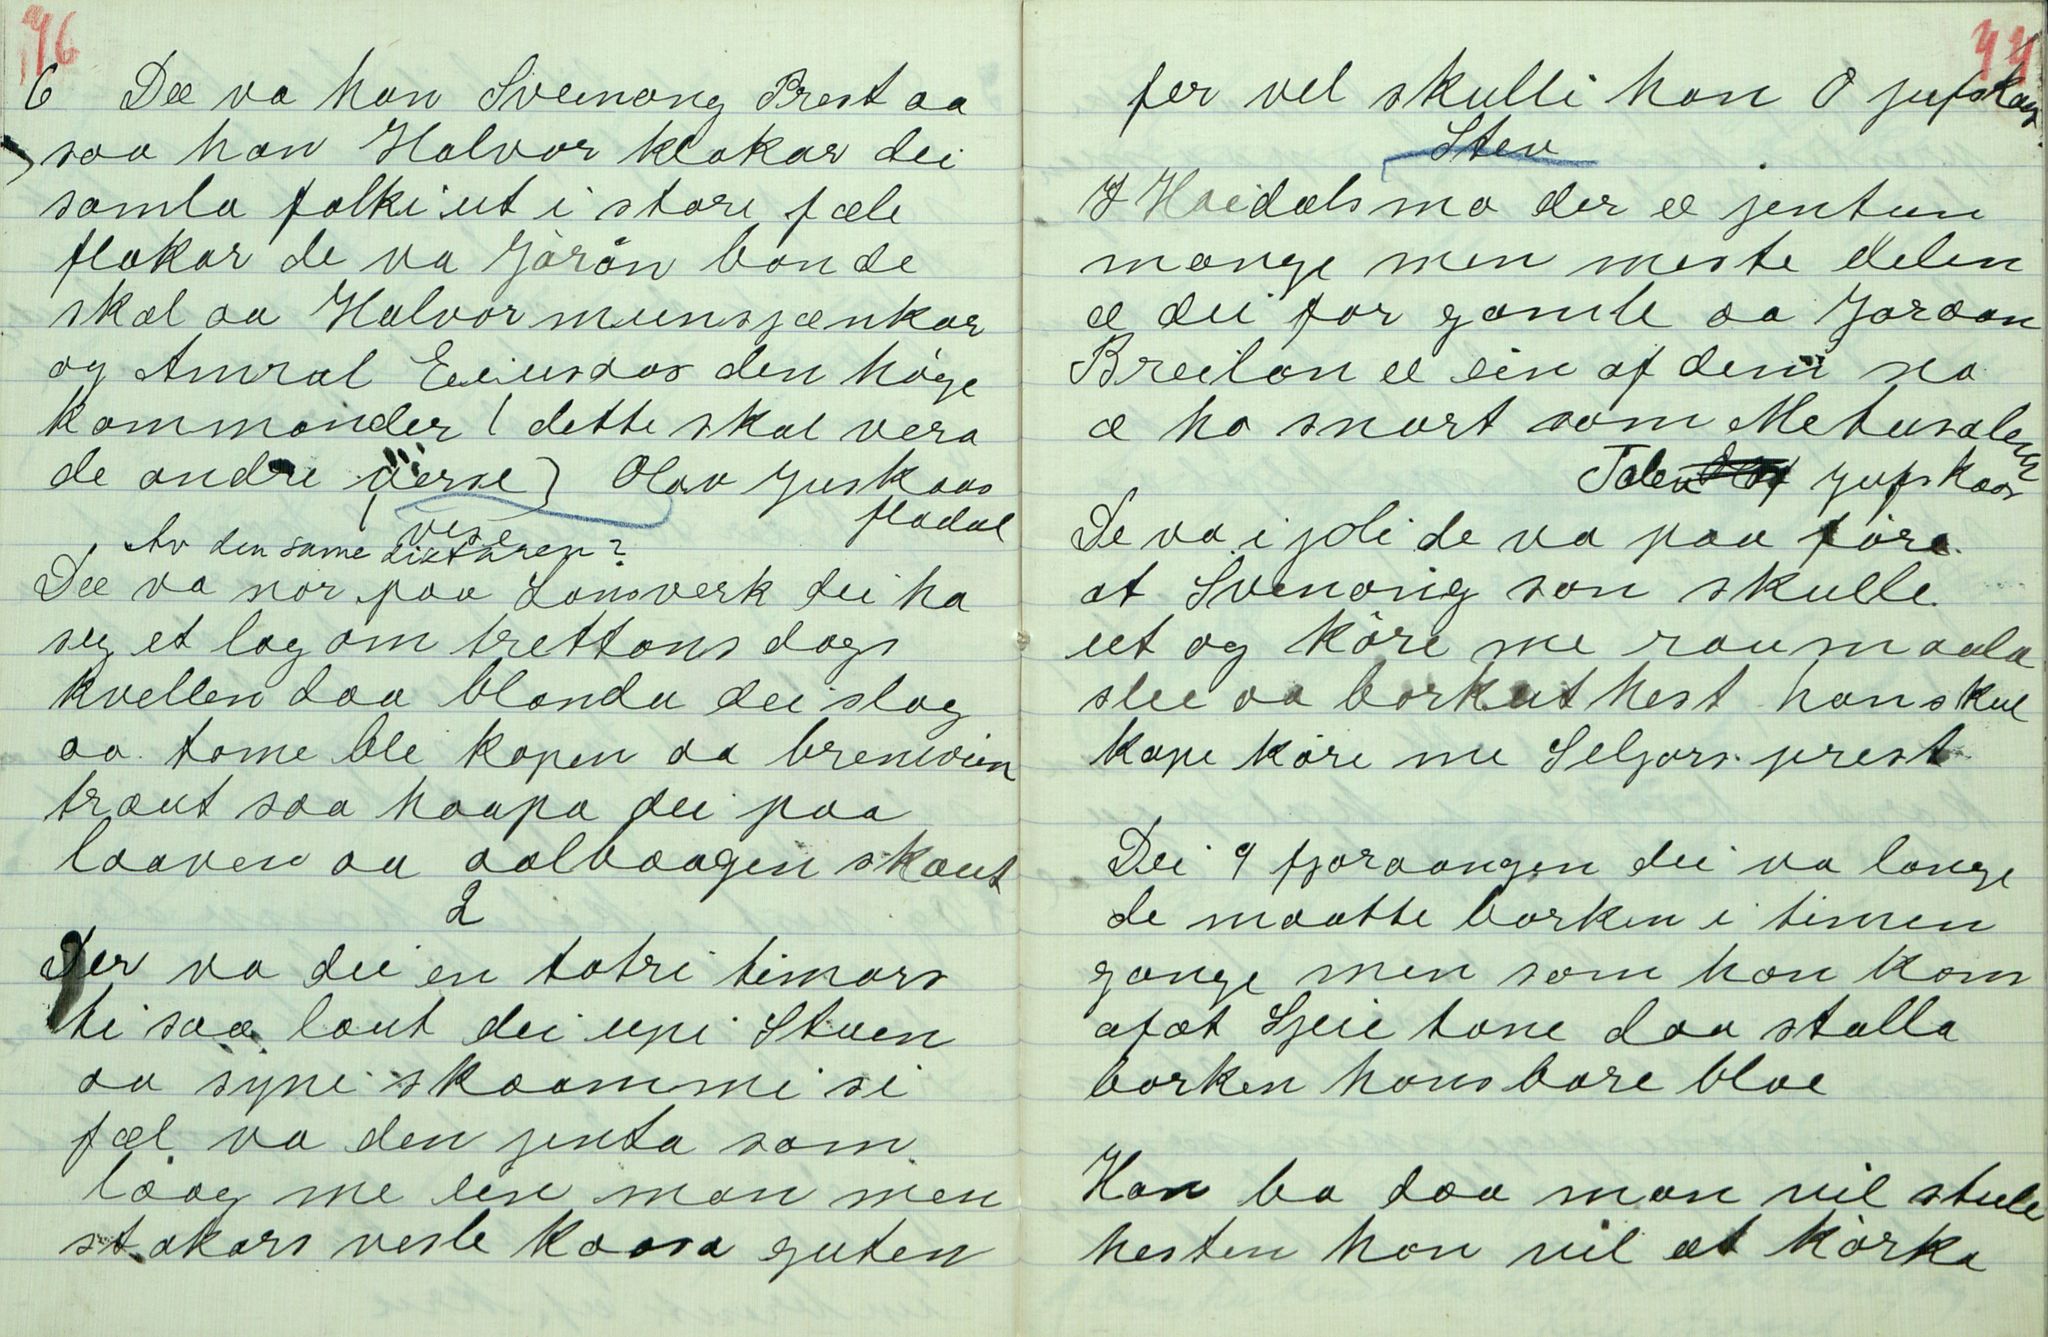 46
6 Dæ va han Sveinang Prest aa
saa han Halvor klokar dei
samla folki ut i store fæle
flokar de va Jòròn bonde
skal aa Halvor munsjænkar
og Amral den höge
kommander (dette skal vera
de andre verse) Olav Juskaas
fladal
vise
Av den same diktaren?
Dæ va nor paa Lonsverk dei ha
seg et lag om trettons dags
kvellen daa blonda dei slag
aa tome ble kopen aa brenevin
traut saa haapa dei paa
laaven aa aalboogen skaut
2
Der va dei en totri timars
ti saa laut dei upi Stuen
aa syne skaammi si
fæl va den jenta som
laag me ein man men
stakars vesle Kaasa guten
44
fer vel skulli han O jufskaas
Stev
I Hæidals ma der æ jentun
mange men meste delen
æ dei for gamle aa Joraan
Breilan æ ein af dem no
æ ho snart som Metusalem
Talen jufskaas
De va i joli de va paa före
at Svenang son skulle
ut og köre me raumaala
slee aa borkut hest han skul
kape köre me Seljors prest
Dei 9 fjoraangen dei va lange
de maatte borken i timen
gange men som han kom
afat tone daa stalla
borken hons bare blae
Han ba daa man vil stule
hesten han vil at körka